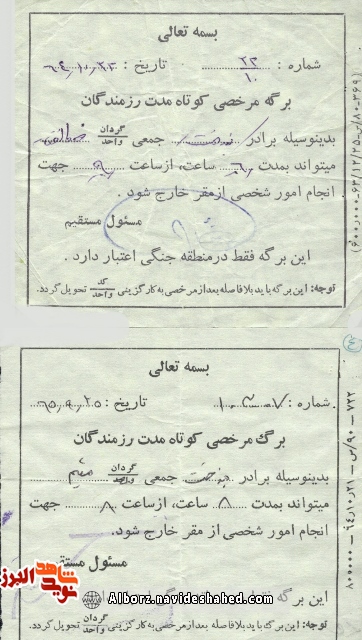 بسمه تعالی
شماره : ۲۳/۱۰ تاریخ :
برگه مرخصی کوتاه مدت رزمندگان
بدینوسیله برادر جمعی گردان واحد
میتواند بمدت ساعت، ازساعت جهت
انجام امور شخصی ازمقر خارج شود .
مسئول مستقیم
این برگه فقط درمنطقه جنگی اعتبار دارد .
توجه: این برگه باید بلافاصله بعدازمرخصی به کارگزینی گد واحد تحویل گردد.
بسمه تعالی
شماره : تاریخ : ۶۵،۹،۲۵
برگ مرخصی کوتاه مدت رزمندگان
بدینوسیله برادر جمعی گردان واحد
میتواند بمدت ۸ ساعت، ازساعت ۸ جهت
انجام امور شخصی از مقر خارج شود.
مسئول مستقیم
این برگه
Alborz.navideshahed.com
توجه: این برگه باید بلافاصله بعدازمرخصی به کارگزینی گردان واحد تحویل گردد.
نوید شاهد البرز